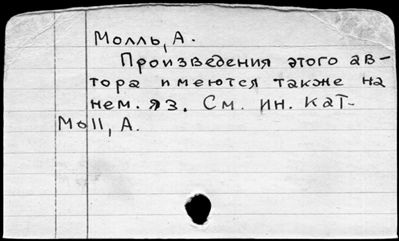 Молль, А.
Произведения этого ав-
тора имеются также на
нем. яз. См. ин. кат-
Moll, A.